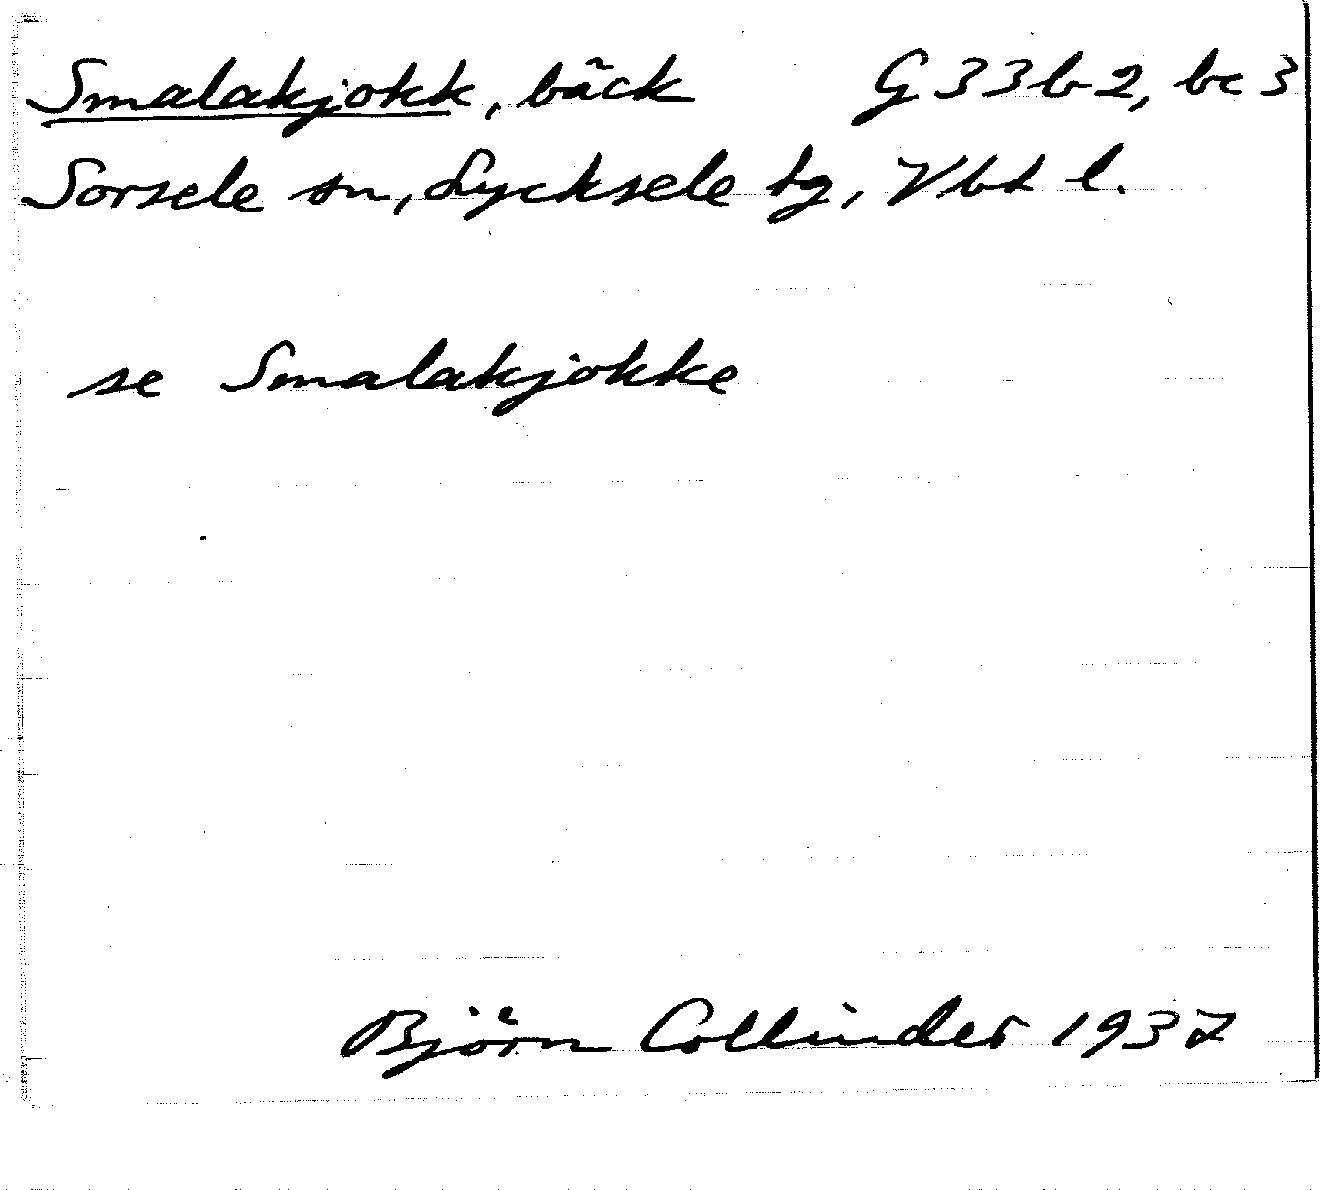 Smalakjokk, bäck G 33 b 2, bc 3
Sorsele sn, Lycksele tg, Vbt l.
se Smalakjokke
Björn Collinder 1937